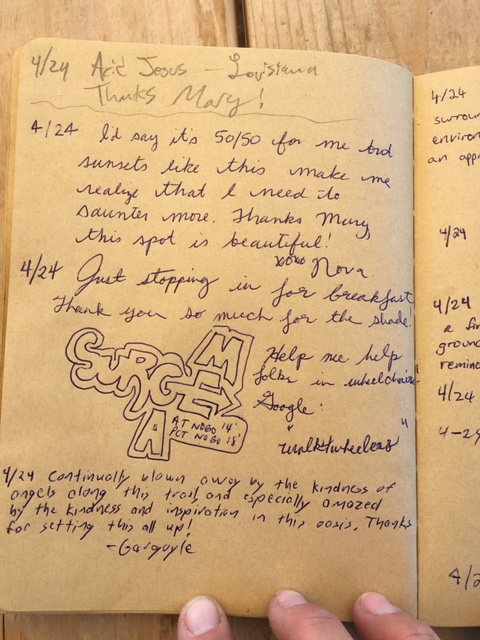 4/24 Acid Jesus - Louisiana
Thanks Mary!
4/24 I'd say it's 50/50 for me but
sunsets like this make me
realize that I need to
saunter more. Thanks Mary
this spot is beautiful!
xoxo Nova
4/24 Just stopping in for breakfast
Thank you so much for the shade!
SURGE
MEA
AT NOBO 14'
PCT NOBO 18'
Help me help
folks in wheelchairs
Google:
"walk4wheelers"
4/24 continually blown away by the kindness of
angels along this trail, and especially amazed
by the kindness and inspiration in this oasis. Thanks
for setting this all up!
-Gargoyle
4/24
surrou
environ
an app
4/24
4/24
a fi
ground
remin
4/24
4-24
4/2